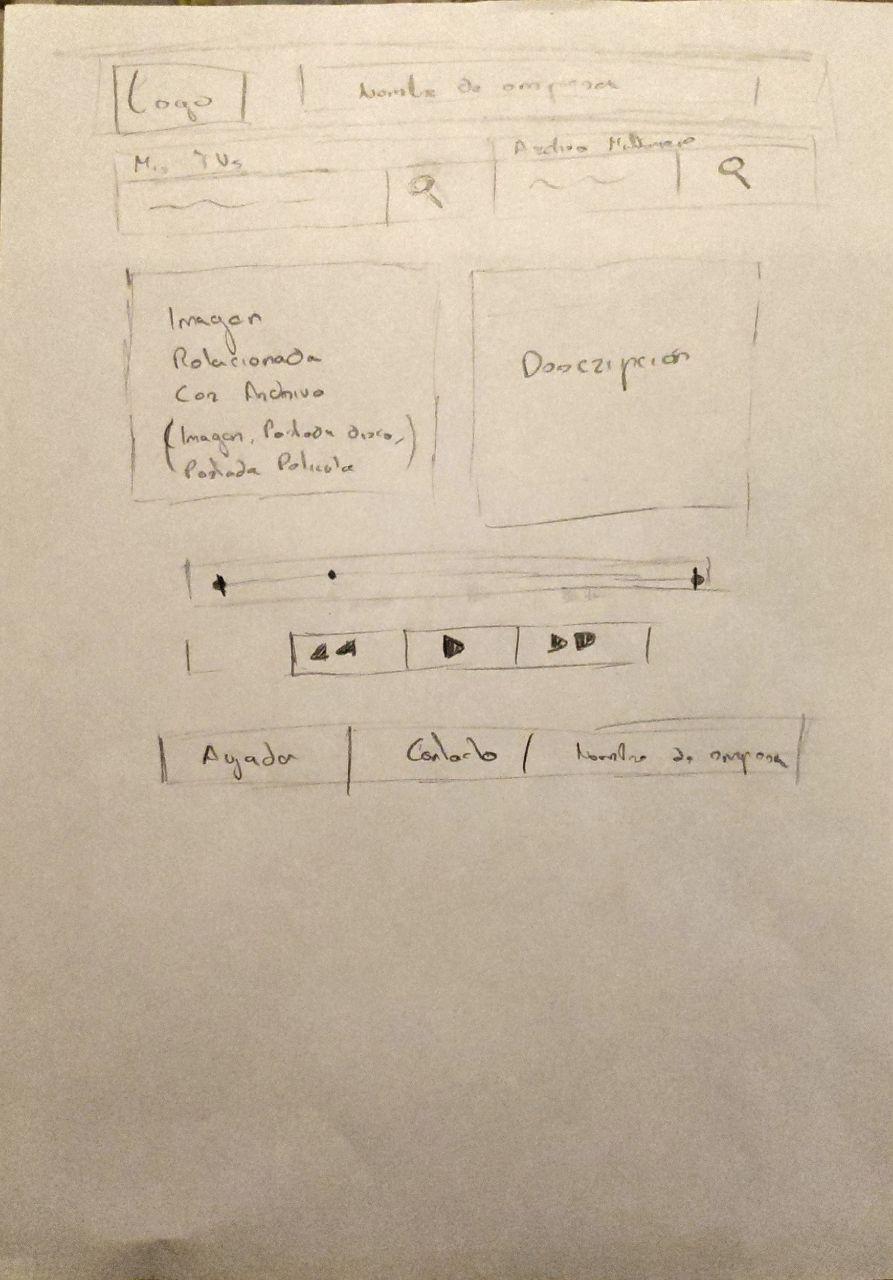 Logo
Nombre de empresa
Mis TVs
Archivo Multimedia
Imagen
Relacionada
Con Archivo
(Imagen, Portada disco,
Portada Película)
Descripción
Ayuda
Contacto
Nombre de empresa